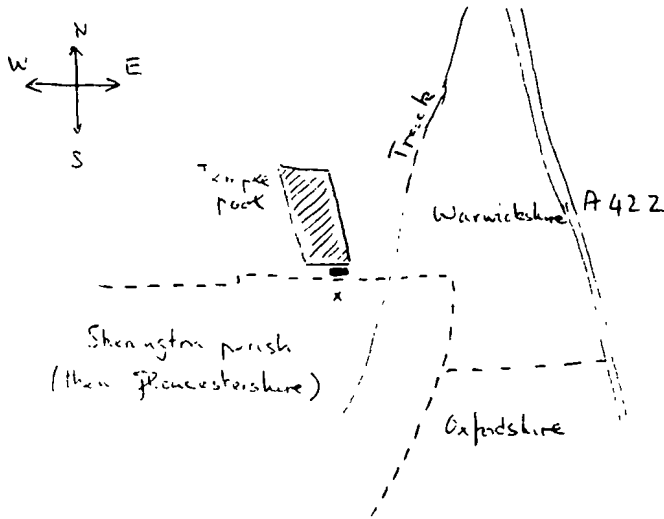 N
W E
S
Track
Temple
pool
Warwickshire
A 422
x
Shenington parish
(then Gloucestershire)
Oxfordshire